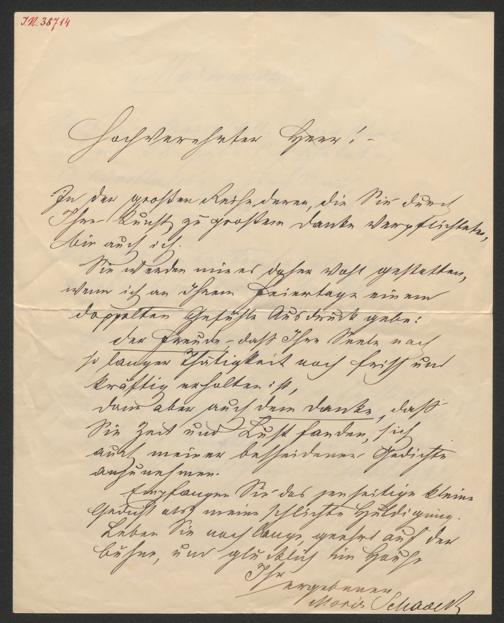 I.N. 38714
Hochverehrter Herr! –
In der großen Reihe deren, die Sie durch
Ihre Kunst zu großem Danke verpflichteten,
bin auch ich.
Sie werden mir es daher wohl gestatten,
wenn ich an Ihrem Feiertage einem
doppelten Gefühle Ausdruck gebe:
der Freude, daß Ihre Seele nach
so langer Thätigkeit noch frisch und
kräftig erhalten ist,
dann aber auch dem Danke, daß
Sie Zeit und Lust fanden, sich
auch meiner bescheidenen Gedichte
anzunehmen.
Empfangen Sie das jenseitige kleine
Gedicht als meine schlichte Huldigung.
Leben Sie noch lange, geehrt auf der
Bühne, und glücklich im Hause
Ihr
ergebener
Moriz Schadek